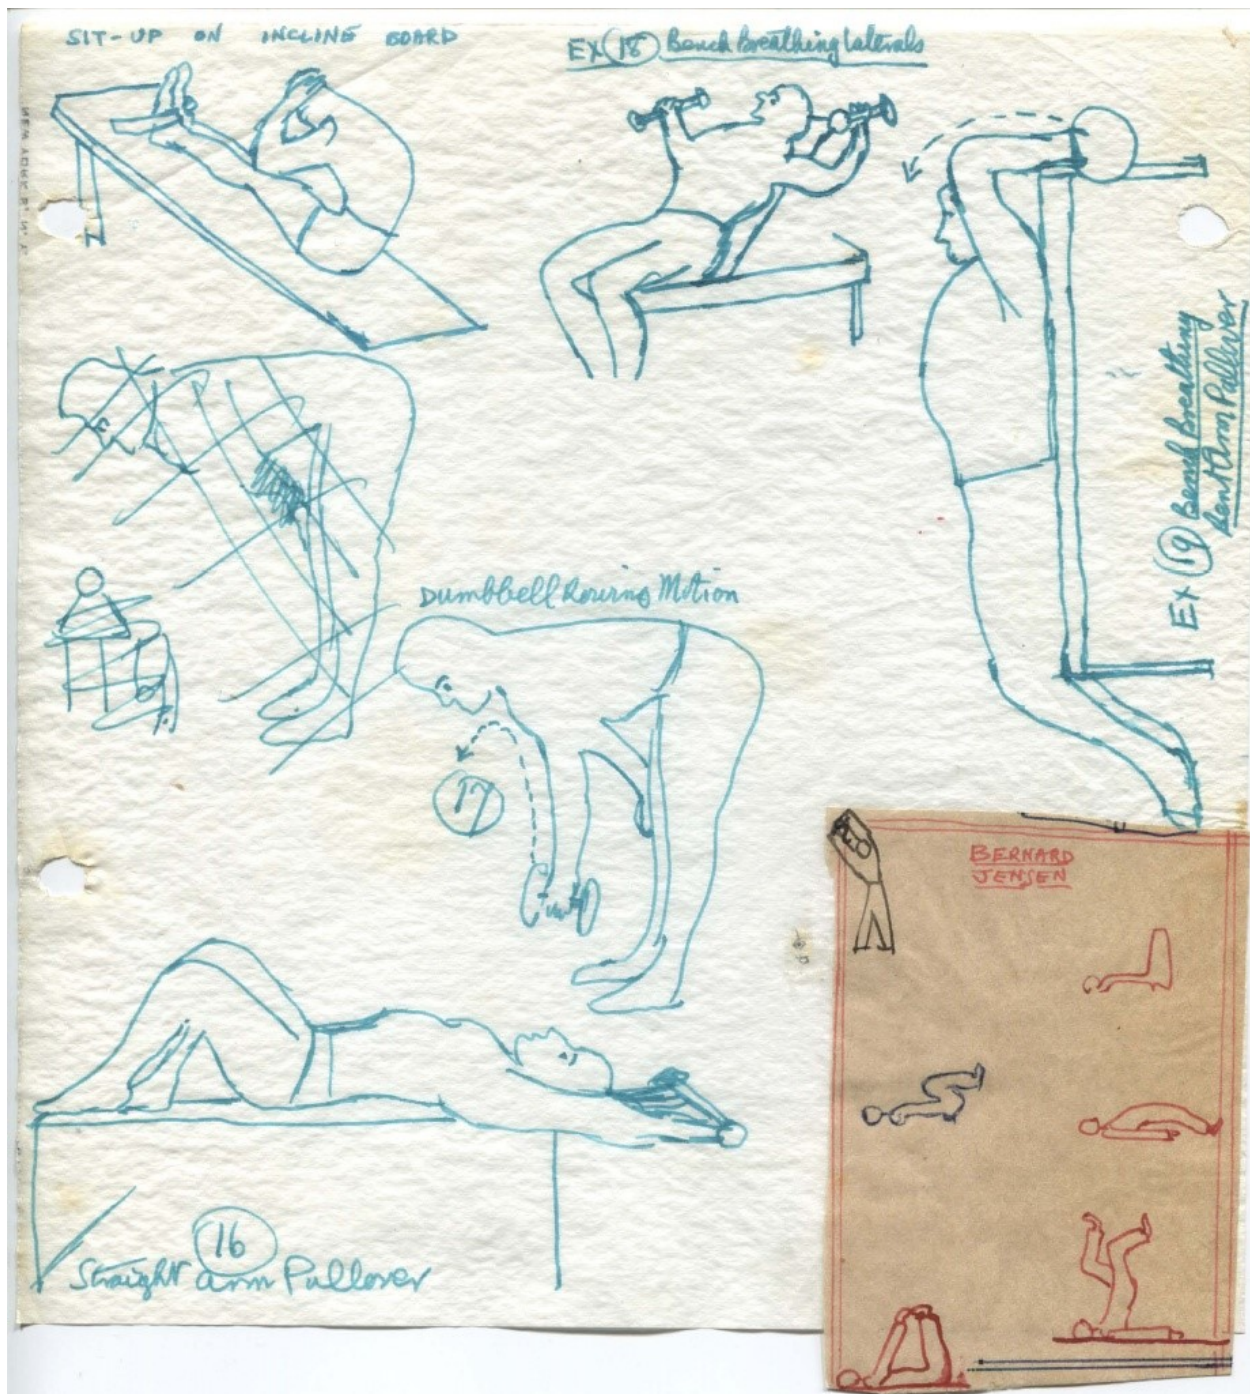 SIT-UP ON INCLINE BOARD
EX (18) Bench Breathing Laterals
EX (19) Bench Breathing
Bent Arm Pullover
Dumbbell Rowing Motion
17
16
Straight Arm Pullover
BERNARD
JENSEN